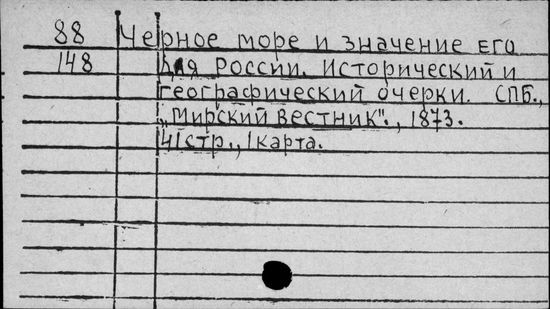 88 Черное море и значение его
148 для России. Исторический и
географический очерки. СПБ.,
„Мирский вестник"., 1873.
41стр., 1карта.